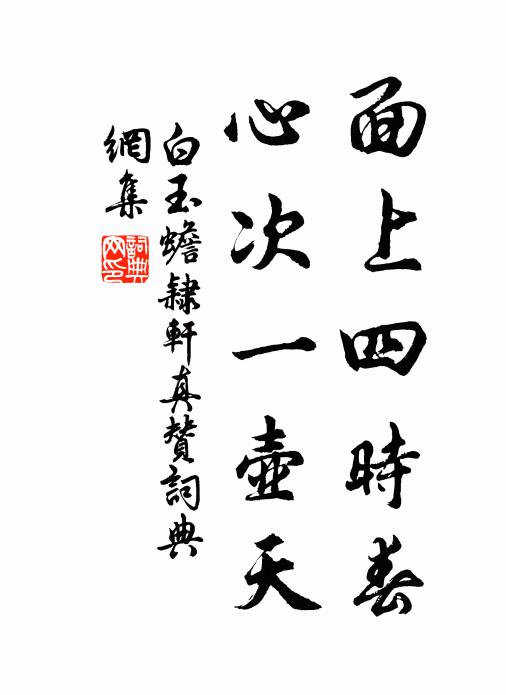 面上四時春
心次一壺天
白玉蟾隸軒真贊詞典
網集
詞典
網印